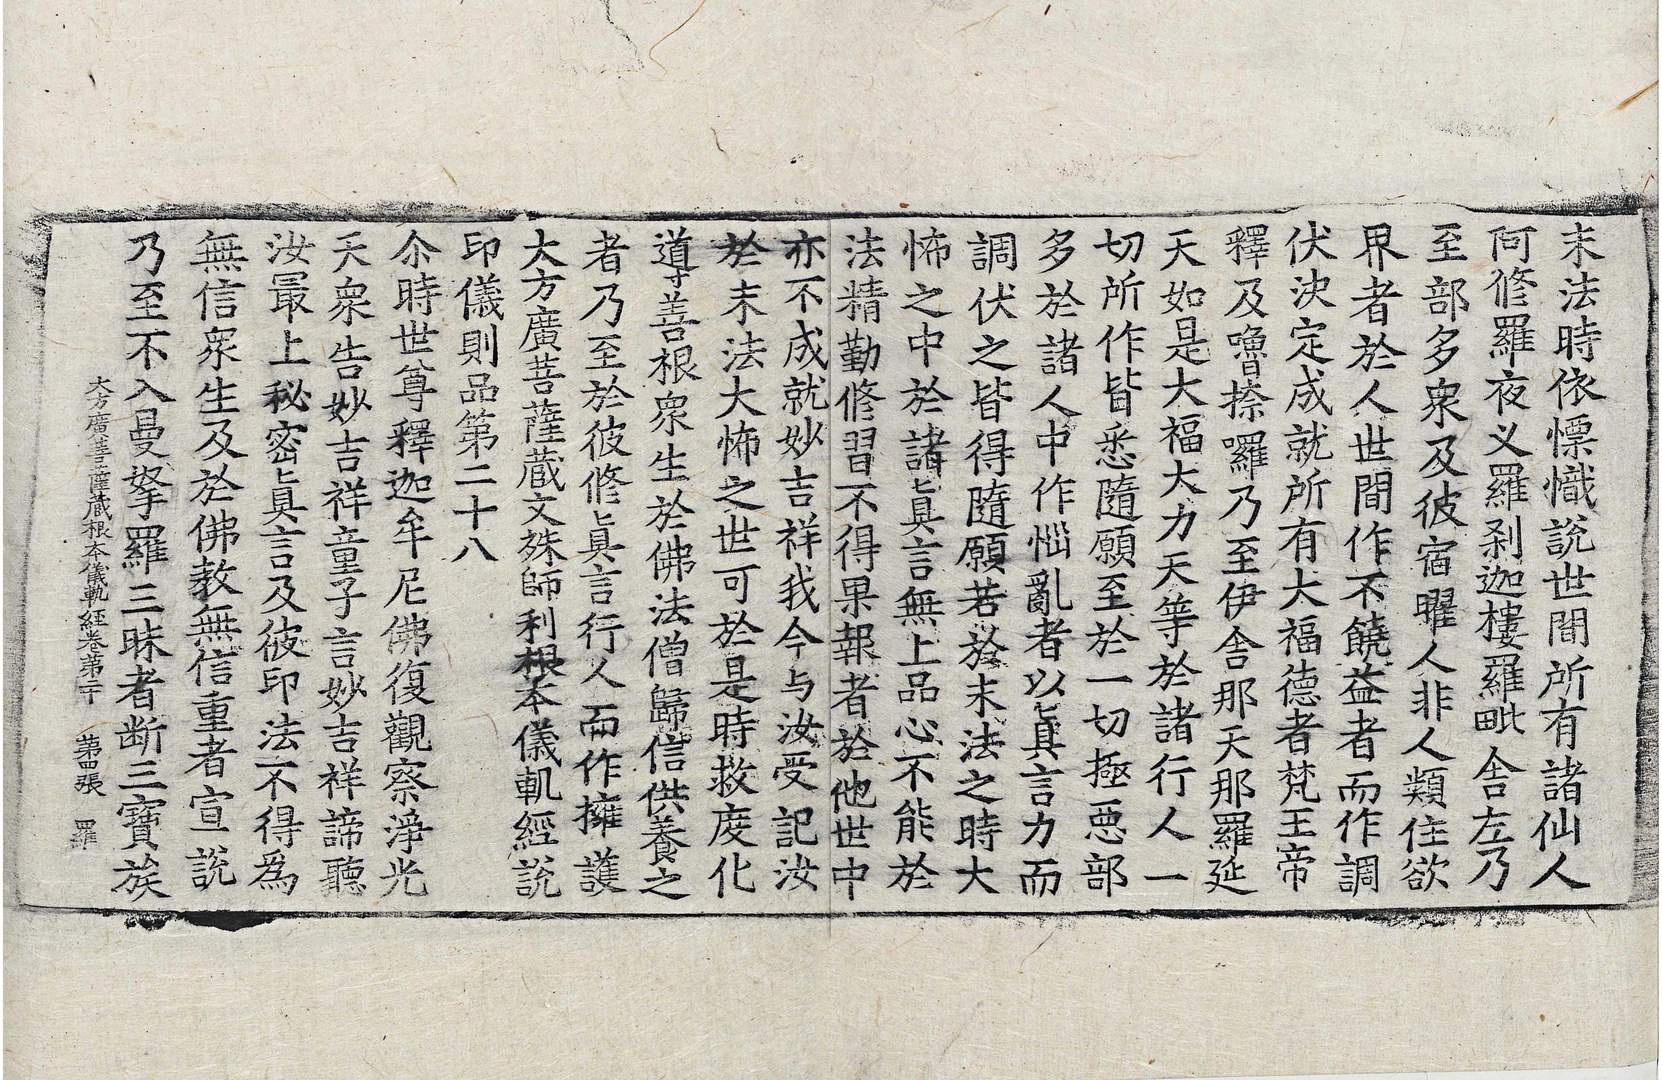 末法時依慓幟說世間所有諸仙人
阿修羅夜叉羅剎迦樓羅毗舍左乃
至部多衆及彼宿曜人非人類住欲
界者於人世間作不饒益者而作調
伏決定成就所有大福德者梵王帝
釋及嚕捺囉乃至伊舍那天那羅延
天如是大福大力天等於諸行人一
切所作皆悉隨願至於一切極惡部
多於諸人中作惱亂者以眞言力而
調伏之皆得隨願若於末法之時大
怖之中於諸眞言無上品心不能於
法精勤修習不得果報者於他世中
亦不成就妙吉祥我今与汝受記汝
於末法大怖之世可於是時救度化
導善根衆生於佛法僧歸信供養之
者乃至於彼修眞言行人而作擁護
大方廣菩薩藏文殊師利根本儀軌經說
印儀則品第二十八
尒時世尊釋迦牟尼佛復觀察淨光
天衆告妙吉祥童子言妙吉祥諦聽
汝最上秘密眞言及彼印法不得爲
無信衆生及於佛教無信重者宣說
乃至不入曼拏羅三昧者断三寶族
大方廣菩薩藏根本儀軌經卷第二十 第四張 羅